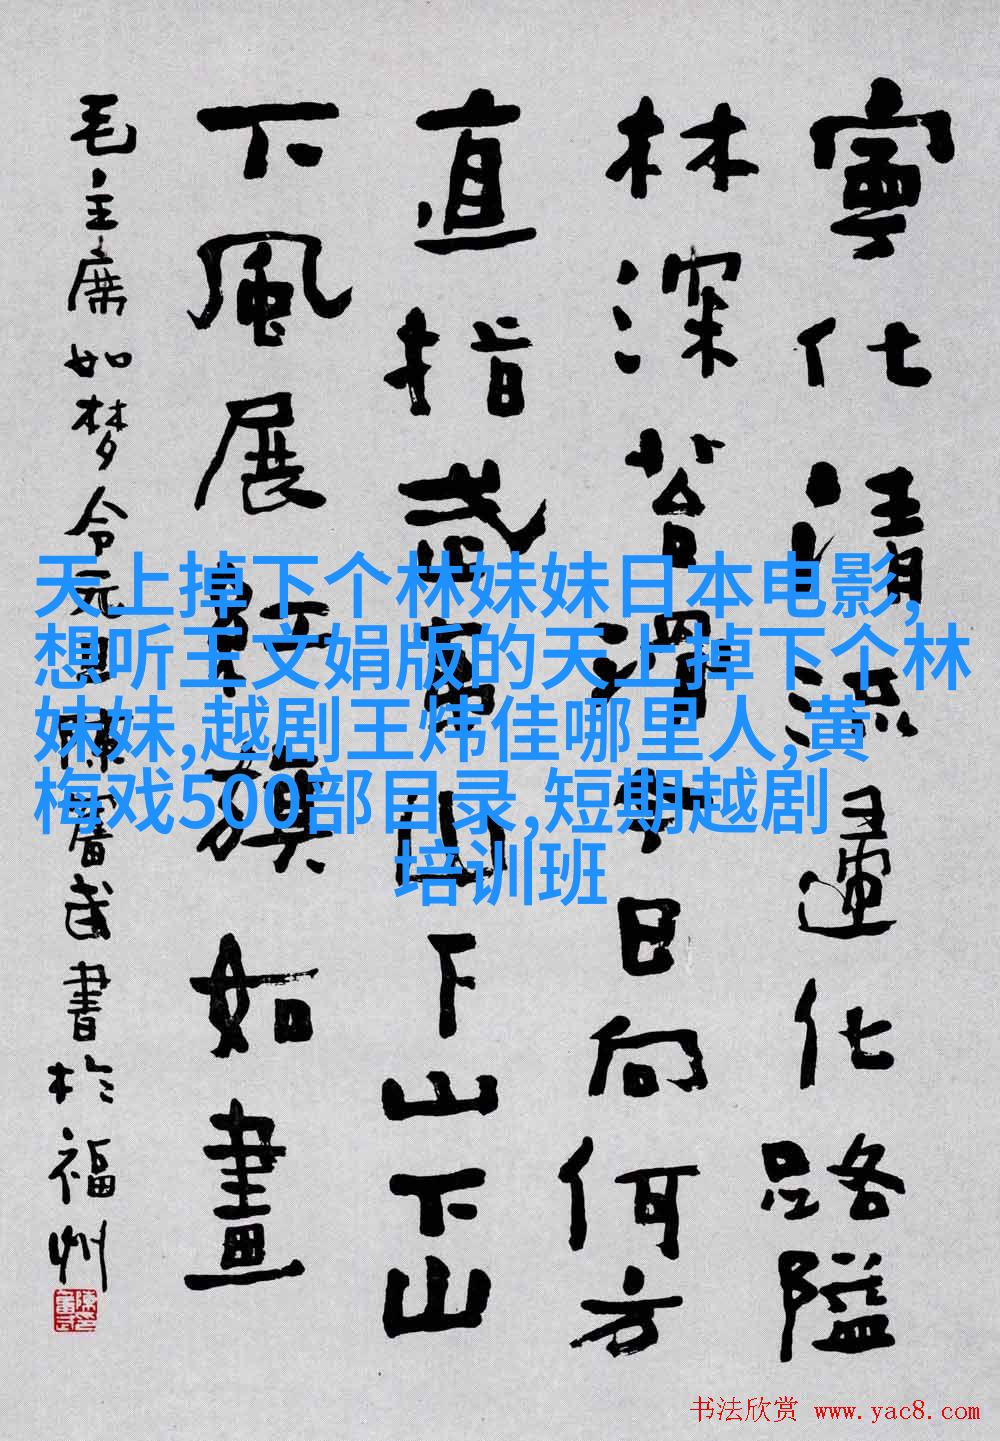 寧化清流歸化路隘
林深苔滑今日向何方
直指武夷山下山下山
下風展紅旗如畫
毛主席如梦令元旦陳奮武書於福州
天上掉下个林妹妹日本电影,
想听王文娟版的天上掉下个林
妹妹,越剧王炜佳哪里人,黄
梅戏500部目录,短期越剧
培训班
书法欣赏 www.yac8.com